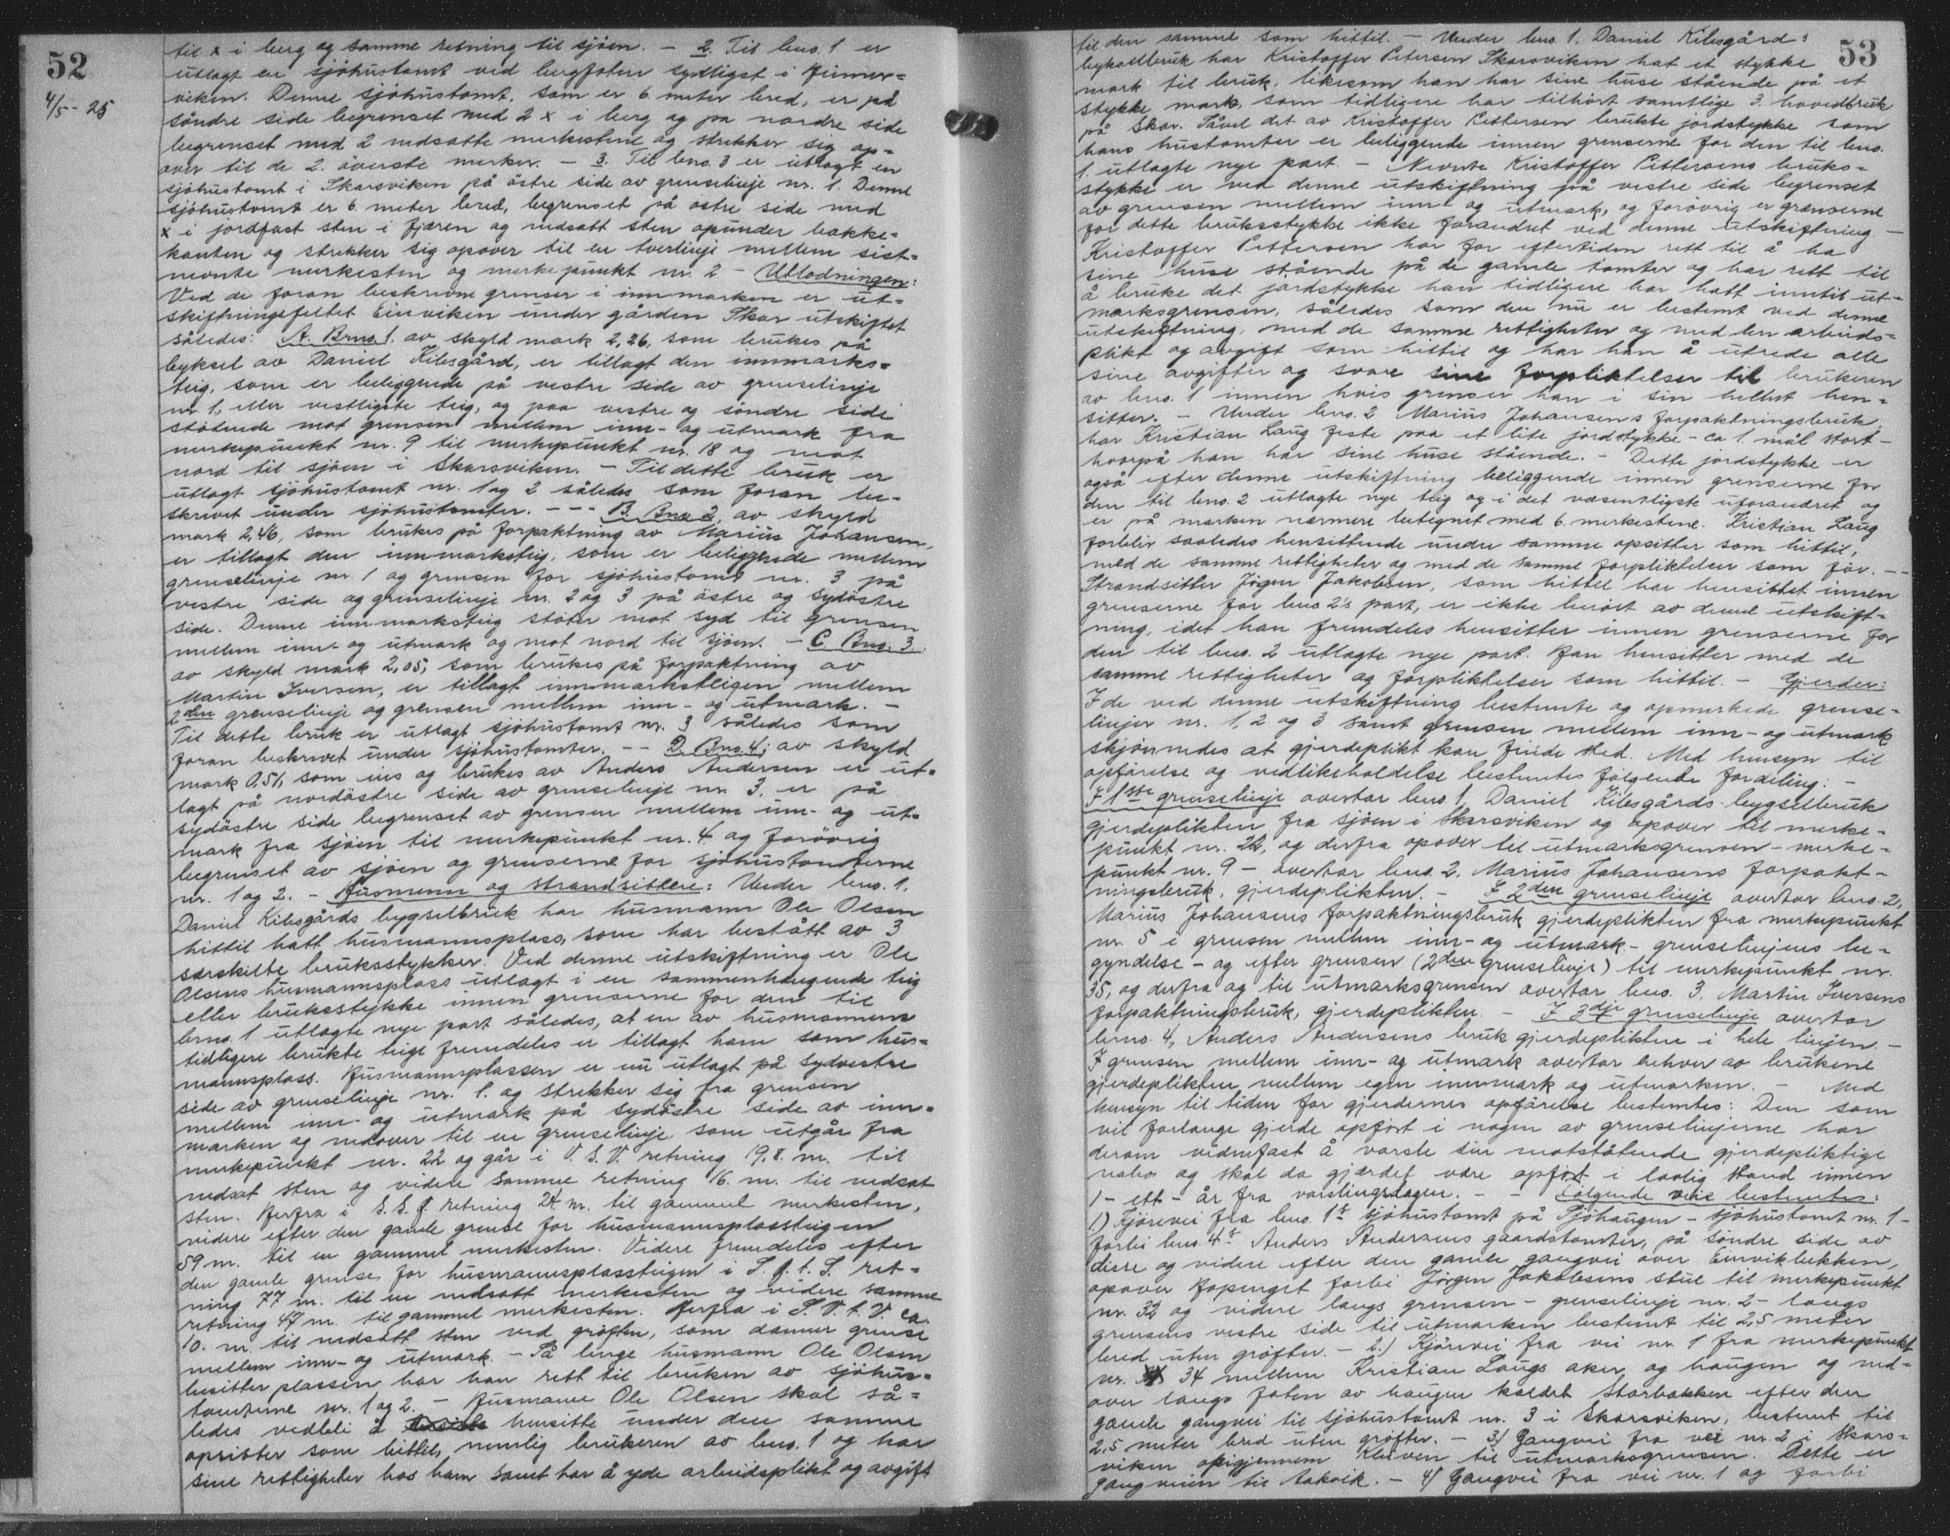 52
4/5 - 25
til x i berg og samme retning til sjöen. - 2. Til bno. 1 er
utlagt en sjöhustomt ved bergfoten sydligst i Finner-
viken. Denne sjöhustomt, som er 6 meter bred, er på
söndre side begrenset med 2 x i berg og på nordre side
begrenset med 2 nedsatte merkestene og strekker sig op-
over til de 2 överste merker. - 3. Til bno. 3 er utlagt en
sjöhustomt i Skarsviken på östre side av grenselinje nr. 1. Denne
sjöhustomt er 6 meter bred, begrenset på östre side med
x i jordfast sten i fjæren og nedsatt sten opunder bakke-
kanten og strekker sig opover til en tverlinje mellem sist-
nevnte merkesten og merkepunkt nr. 2 - Utlodningen:
Ved de foran beskrevne grenser i innmarken er ut-
skiftningsfeltet Einviken under gården Skar utskiftet
således: A. Brno. 1. av skyld mark 2,26, som brukes på
byksel av Daniel Kilesgård, er tillagt den innmarks-
teig, som er beliggende på vestre side av grenselinje
nr. 1, eller vestligste teig, og paa vestre og söndre side
stötende mot grensen mellem inn- og utmark fra
merkepunkt nr. 9 til merkepunkt nr. 18 og mot
nord til sjöen i Skarsviken. - Til dette bruk er
utlagt sjöhustomt nr. 1 og 2 således som foran be-
skrevet under sjöhustomter. --- B. Bno 2, av skyld
mark 2,46, som brukes på forpaktning av Marius Johansen,
er tillagt den innmarksteig, som er beliggende mellem
grenselinje nr. 1 og grensen for sjöhustomt nr. 3 på
vestre side og grenselinje nr. 2 og 3 på östre og sydöstre
side. Denne innmarksteig stöter mot syd til grensen
mellem inn- og utmark og mot nord til sjöen. - C. Bno. 3.
av skyld mark 2,05, som brukes på forpaktning av
Martin Iversen, er tillagt innmarksteigen mellem
2den grenselinje og grensen mellem inn- og utmark. -
Til dette bruk er utlagt sjöhustomt nr. 3 således som
foran beskrevet under sjöhustomter. -- D. Bno. 4, av skyld
mark 0,51, som eies og brukes av Anders Andersen er ut-
lagt på nordöstre side av grenselinje nr. 3, er på
sydöstre side begrenset av grensen mellem inn- og ut-
mark fra sjöen til merkepunkt nr. 4 og forövrig
begrenset av sjöen og grenserne for sjöhustomterne
nr. 1 og 2. - Husmenn og strandsittere: Under bno. 1,
Daniel Kilesgårds bygselbruk har husmann Ole Olsen
hittil hatt husmannsplass, som har bestått av 3
særskilte bruksstykker. Ved denne utskiftning er Ole
Olsens husmannsplass utlagt i en sammenhengende teig
eller bruksstykke innen grenserne for den til
bno. 1 utlagte nye part således, at en av husmannens
tidligere brukte teige fremdeles er tillagt ham som hus-
mannsplass. Husmannsplassen er nu utlagt på sydvestre
side av grenselinje nr. 1. og strekker sig fra grensen
mellem inn- og utmark på sydöstre side av inn-
marken og nedover til en grenselinje, som utgår fra
merkepunkt nr. 22 og går i V. S. V. retning 9,8 m. til
nedsat sten og videre samme retning 16. m. til nedsat
sten. Herfra i S. S. Ö. retning 24 m. til gammel merkesten,
videre efter den gamle grense for husmannsplassteigen
59 m. til en gammel merkesten. Videre fremdeles efter
den gamle grense for husmannsplassteigen i S. Ö. t. S. ret-
ning 77 m. til en nedsatt merkesten og videre samme
retning 47 m. til gammel merkesten. Herfra i S. V. t. V. ca.
10. m. til nedsatt sten ved gröften, som danner grense
mellem inn- og utmark. - Så lenge husmann Ole Olsen
besitter plassen har han rett til bruken av sjöhus-
tomterne nr. 1 og 2. - Husmann Ole Olsen skal så-
ledes vedbli å hensitte under den samme
opsitter som hittil, nemlig brukeren av bno. 1 og har
sine rettigheter hos ham samt har å yde arbeidsplikt og avgift
53
til den samme som hittil. - Under bno. 1, Daniel Kilesgård:
bykselbruk har Kristoffer Petersen Skarsviken hat et stykke
mark til bruk, likesom han har sine huse stående på et
stykke mark, som tidligere har tilhört samtlige 3 hovedbruk
på Skar. Såvel det av Kristoffer Pettersen brukte jordstykke som
hans hustomter er beliggende innen grenserne for den til bno.
1 utlagte nye part. - Nevnte Kristoffer Pettersens bruks-
stykke er ved denne utskiftning på vestre side begrenset
av grensen mellem inn- og utmark, og forövrig er grænserne
for dette bruksstykke ikke forandret ved denne utskiftning. -
Kristoffer Pettersen har for eftertiden rett til å ha
sine huse stående på de gamle tomter og har rett til
å bruke det jordstykke han tidligere har hatt inntil ut-
marksgrensen, således som den nu er bestemt ved denne
utskiftning, med de samme rettigheter og med den arbeids-
plikt og avgift som hittil og har han å utrede alle
sine avgifter og svare sine forpliktelser til brukeren
av bno. 1 innen hvis grenser han i sin helhet hen-
sitter. - Under bno. 2 Marius Johansens forpaktningsbruk,
har Kristian Laug feste paa et lite jordstykke - ca 1 mål stort -
hvorpå han har sine huse stående. - Dette jordstykke er
også efter denne utskiftning beliggende innen grenserne for
den til bno. 2 utlagte nye teig og i det væsentligste uforandret og
er på marken nærmere betegnet med 6 merkestene. Kristian Laug
forblir saaledes hensittende under samme opsitter som hittil,
med de samme rettigheter og med de samme forpliktelser som för. --
Strandsitter Jörgen Jakobsen, som hittil har hensittet innen
grenserne for bno 2's part, er ikke berört av denne utskift-
ning, idet han fremdeles hensitter innen grenserne for
den til bno. 2 utlagte nye part. Han hensitter med de
samme rettigheter og forpliktelser som hittil. - Gjerder:
I de ved denne utskiftning bestemte og opmerkede grense-
linjer nr. 1, 2 og 3 samt grensen mellem inn- og utmark
skjönnedes at gjerdeplikt kan finde sted. Med hensyn til
opförelse og vedlikeholdelse bestemtes fölgende fordeling: -
I 1ste grenselinje overtar bno. 1, Daniel Kilesgårds bygselbruk
gjerdeplikten fra sjöen i Skarsviken og opover til merke-
punkt nr. 22, og derfra opover til utmarksgrensen - merke-
punkt nr. 9 - overtar bno. 2, Marius Johansens forpakt-
ningsbruk, gjerdeplikten. - I 2den grenselinje overtar bno. 2,
Marius Johansens forpaktningsbruk gjerdeplikten fra merkepunkt
nr. 5 i grensen mellem inn- og utmark - grenselinjens be-
gyndelse - og efter grensen (2den grenselinje) til merkepunkt nr.
35, og derfra og til utmarksgrensen overtar bno. 3, Martin Iversens
forpaktningsbruk, gjerdeplikten. - I 3dje grenselinje overtar
brno. 4, Anders Andersens bruk gjerdeplikten i hele linjen. -
I grensen mellem inn- og utmark overtar enhver av brukene
gjerdeplikten mellem egen innmark og utmarken. - Med
hensyn til tiden for gjerdernes opförelse bestemtes: Den som
vil forlange gjerde opfört i nogen av grenselinjerne har
derom vidnefast å varsle sin motstötende gjerdepliktige
nabo og skal da gjærdet være opfört i lovlig stand innen
1 - ett - år fra varslingsdagen. - - Fölgende veie bestemtes:
1) Kjörevei fra bno. 1s sjöhustomt på Sjöhaugen - sjöhustomt nr. 1 -
forbi bno. 4s Anders Andersens gaardstomter, på söndre side av
disse og videre efter den gamle gangvei over Einvikbekken,
opover forbi Jörgen Jakobsens stue til merkepunkt
nr. 32 og videre langs grensen - grenselinje nr. 2 - langs
grensens vestre side til utmarken bestemt til 2,5 meter
bred uten gröfter. - 2.) Kjörevei fra vei nr. 1 fra merkepunkt
nr. 34 mellem Kristian Laugs aker og haugen og ned-
over langs foten av haugen kaldet Storbakken efter den
gamle gangvei til sjöhustomt nr. 3 i Skarsviken, bestemt til
2,5 meter bred uten gröfter. - 3) Gangvei fra vei nr. 2 i Skars-
viken opigjennem Kleiven til utmarksgrensen. Dette er
gangveien til Aakvik. - 4) Gangvei fra vei nr. 1 og forbi